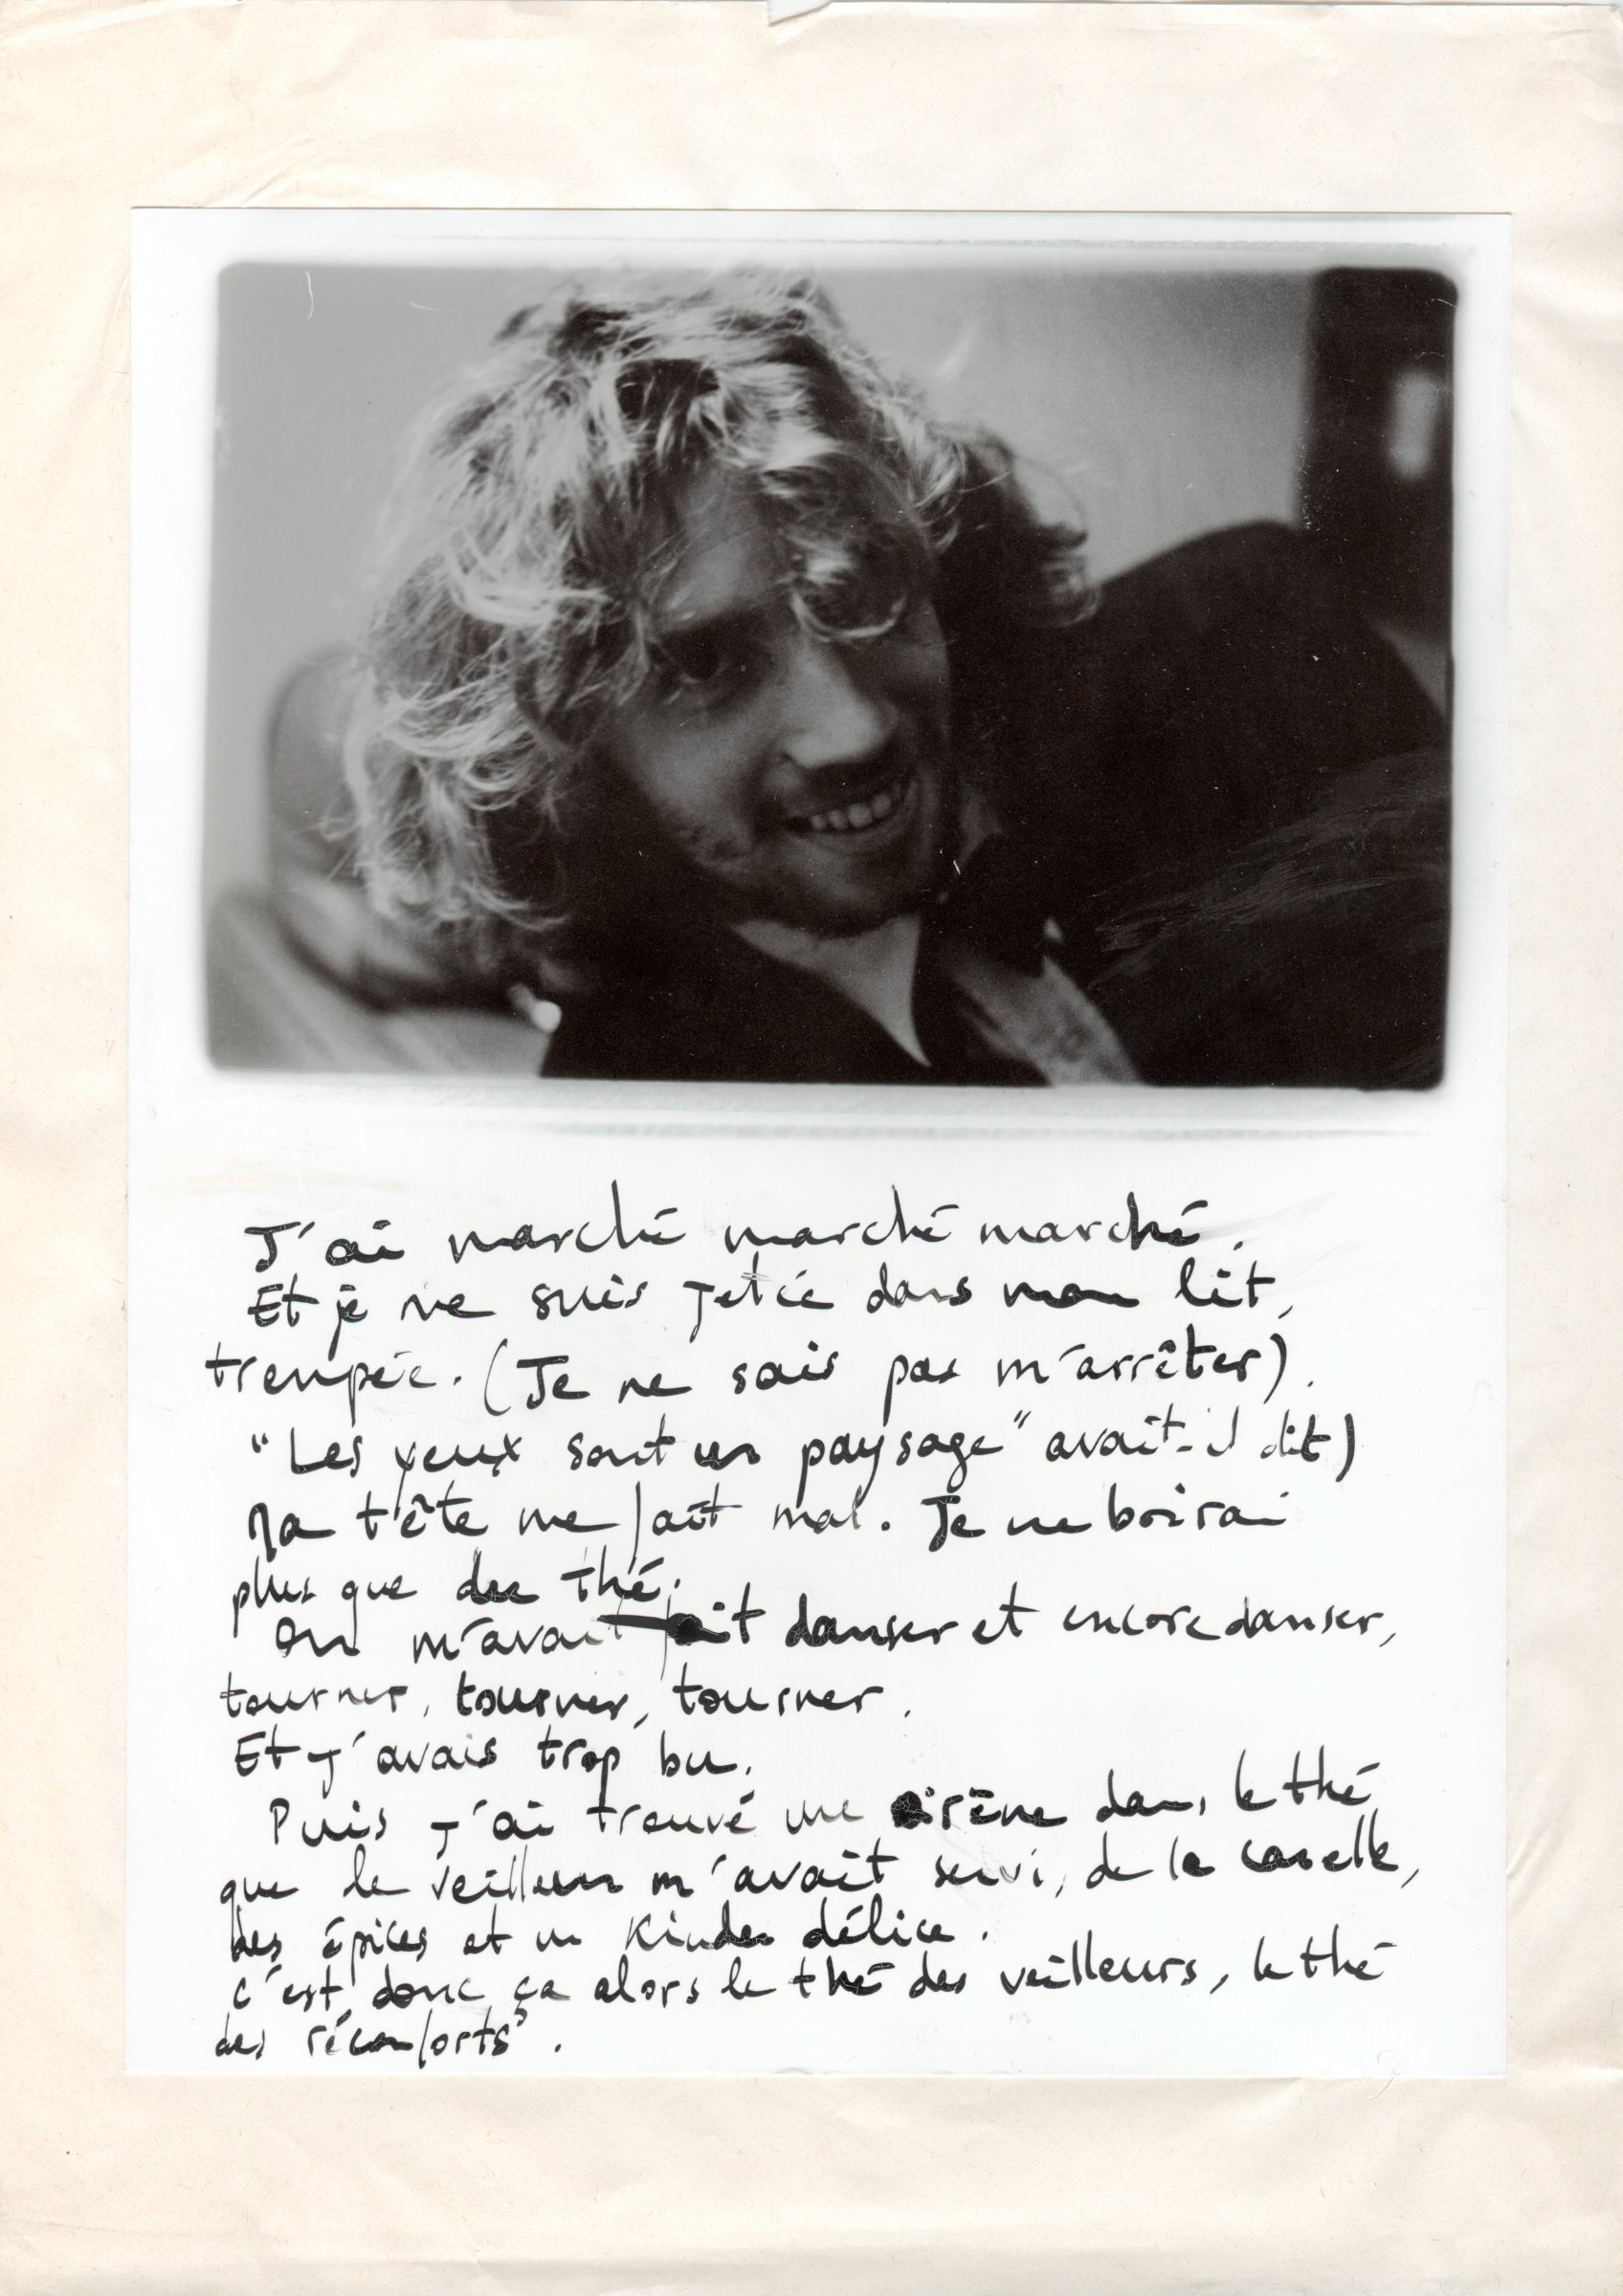 J'ai marché marché marché.
Et je me suis jetée dans mon lit,
trempée. (Je ne sais pas m'arrêter).
"Les yeux sont un paysage" avait-il dit)
Ma tête me fait mal. Je ne boirai
plus que du thé.
On m'avait fait danser et encore danser,
tourner, tourner, tourner.
Et j'avais trop bu.
Puis j'ai trouvé une sirène dans le thé
que le veilleur m'avait servi, de la canelle,
des épices et un Kinder délice.
C'est donc ça alors le thé des veilleurs, le thé
des réconforts".